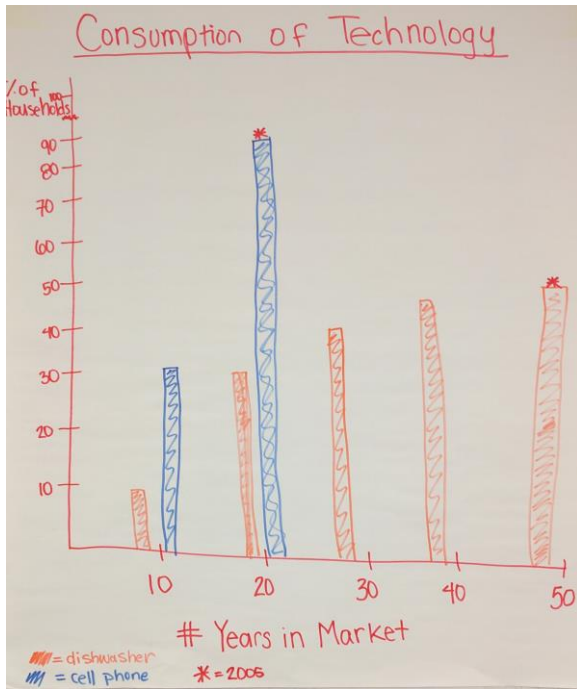 Consumption of Technology
% of
Households
100
90
80
70
60
50
40
30
20
10
10 20 30 40 50
# Years in Market
= dishwasher
= cell phone * = 2005